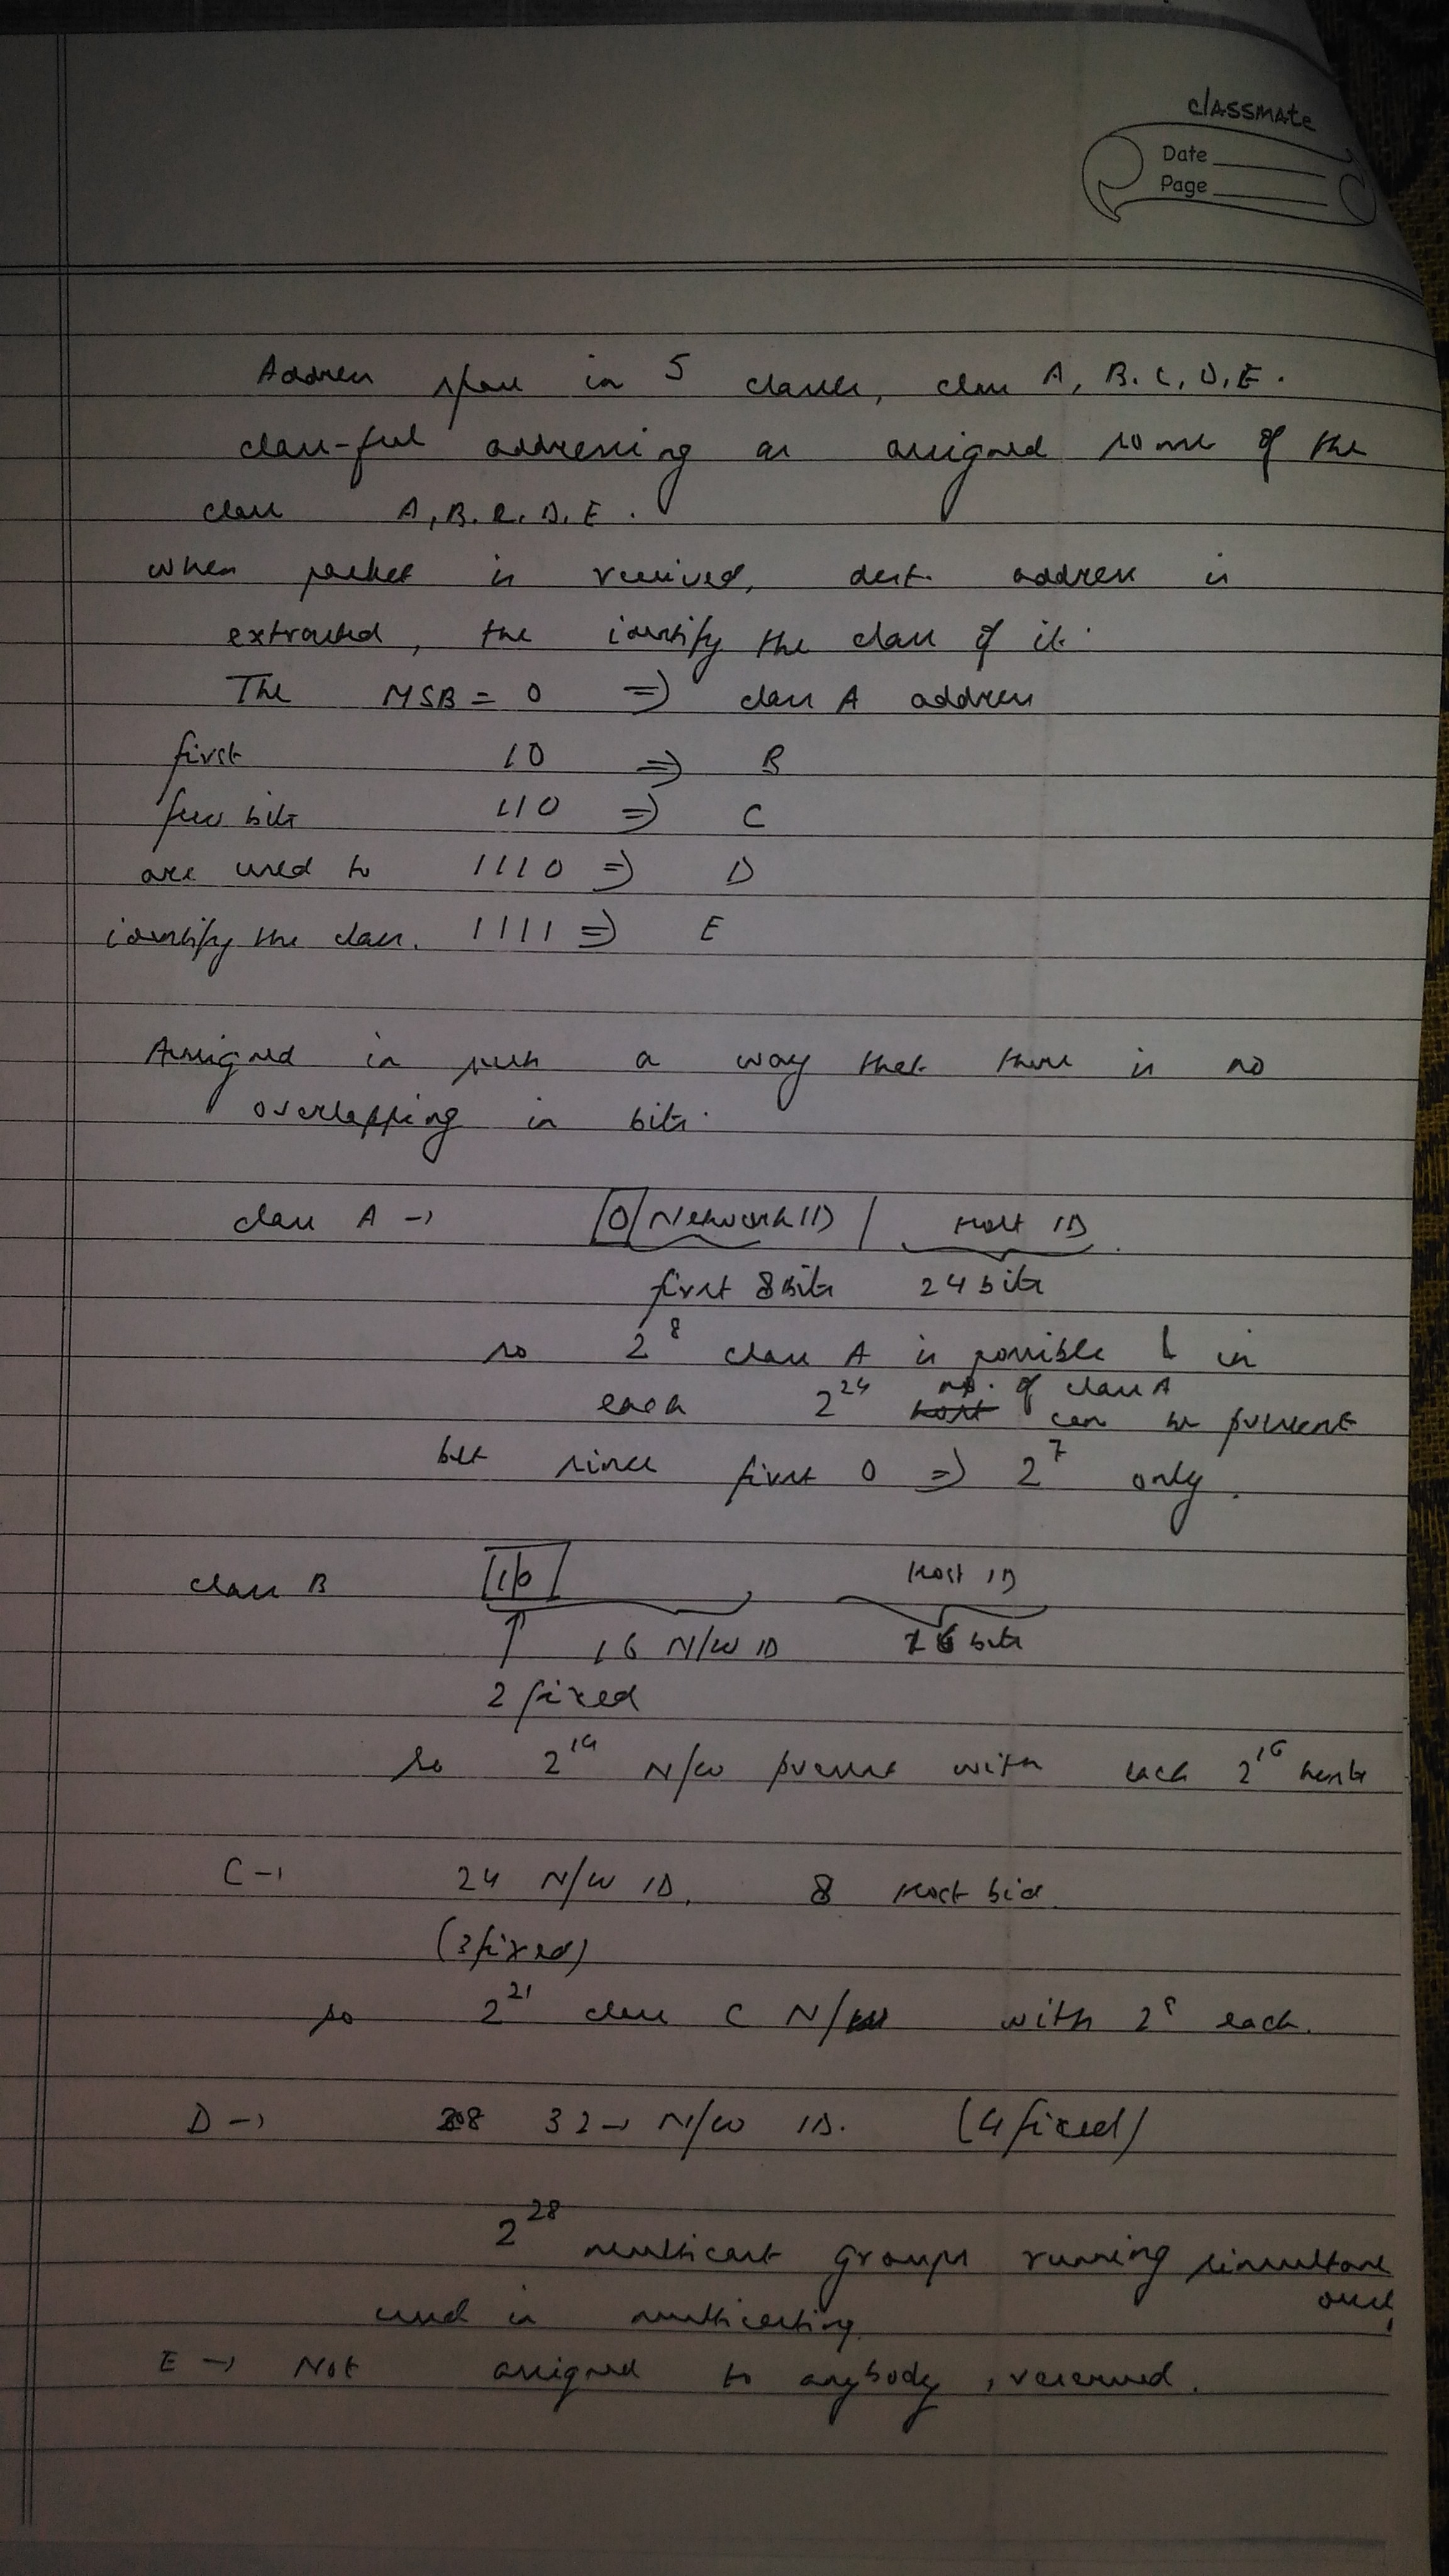 classmate
Date
Page
Address space in 5 classes, class A, B, C, D, E.
class-ful addressing as assigned some of the
class A, B, C, D, E.
when packet is received, dest. address is
extracted, the identify the class of it.
The MSB = 0 => class A address
first 10 => B
few bits 110 => C
are used to 1110 => D
identify the class. 1111 => E
Assigned in such a way that there is no
overlapping in bits.
class A → 0 Network ID | Host ID
first 8 bits 24 bits
so 2^8 class A is possible & in
each 2^24 host no. of class A can be present
but since first 0 => 2^7 only.
class B 10 Host ID
16 N/W ID 16 bits
2 fixed
so 2^14 N/W present with each 2^16 hosts
C → 24 N/W ID. 8 Host bid
(3 fixed)
so 2^21 class C N/W with 2^8 each.
D → 28 32 → N/W ID. (4 fixed)
2^28 multicast groups running simultane
ously
used in multicasting.
E → Not assigned to anybody, reserved.